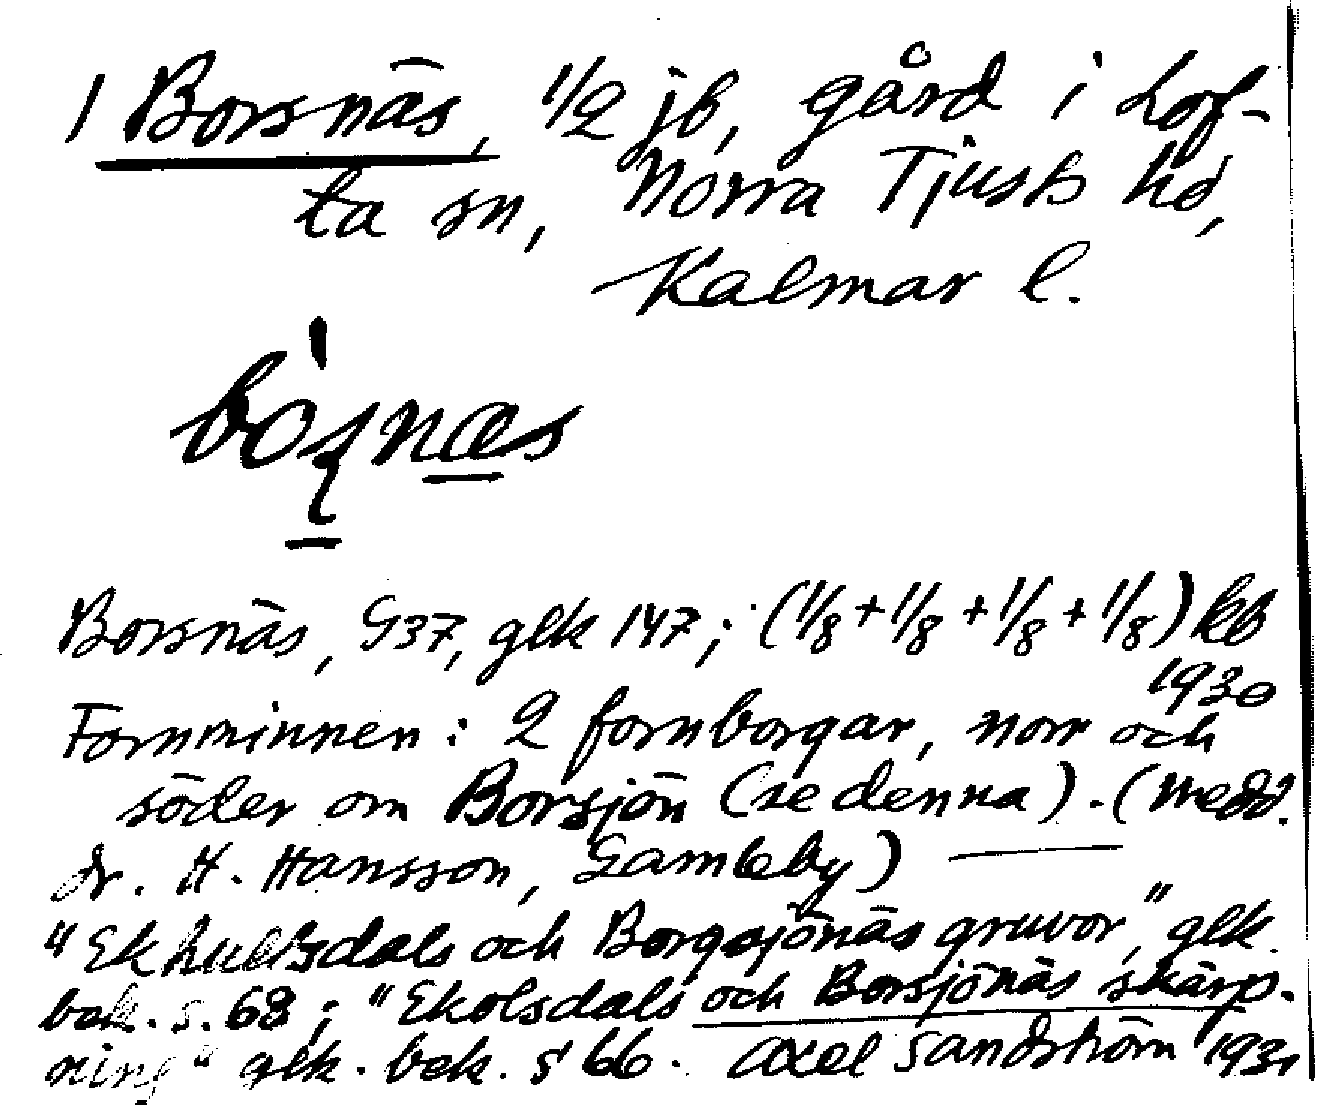 1 Borsnäs, 1/2 jb, gård i Lof-
ta sn, Norra Tjusts hd,
Kalmar l.
Borsnäs, G37, glk 147; (1/8+1/8+1/8+1/8) kb
1930
Fornminnen: 2 fornborgar, norr och
söder om Borsjön (se denna). (Medd.
dr. H. Hansson, Gamleby) —
"Ekhultsdals och Borgsjönäs gruvor", glk.
bok. s. 68; "Ekolsdals och Borsjönäs skärp-
ning" glk. bok. s 66. Axel Sandström 1931